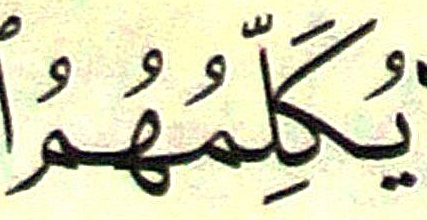 يُكَلِّمُهُمُ